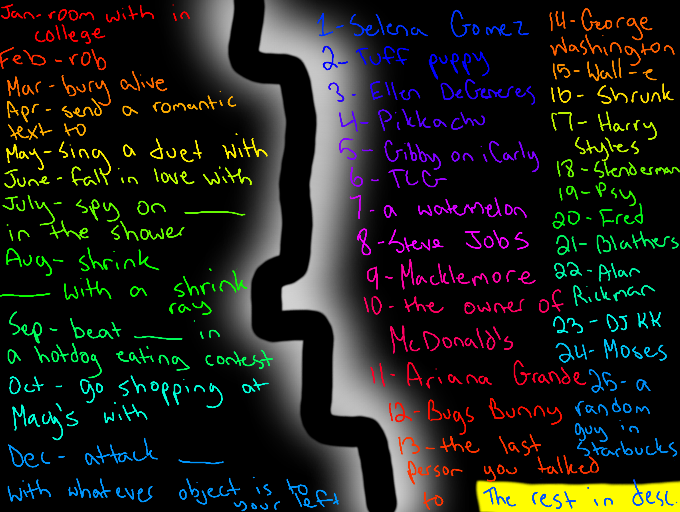 Jan-room with in
college
Feb-rob
Mar-bury alive
Apr-send a romantic
text to
May-sing a duet with
June-fall in love with
July-spy on ____
in the shower
Aug-shrink
____ with a shrink
ray
Sep-beat ____ in
a hotdog eating contest
Oct-go shopping at
Macy's with
Dec-attack ____
with whatever object is to
your left
1-Selena Gomez
2-Tuff puppy
3-Ellen DeGeneres
4-Pikkachu
5-Gibby on iCarly
6-TLG
7-a watermelon
8-Steve Jobs
9-Macklemore
10-the owner of
McDonald's
11-Ariana Grande
12-Bugs Bunny
13-the last
person you talked
to
14-George
Washington
15-Wall-e
16-Shrunk
17-Harry
Styles
18-Slenderman
19-Psy
20-Fred
21-Blathers
22-Alan
Rickman
23-DJ KK
24-Moses
25-a
random
guy in
Starbucks
The rest in desc.